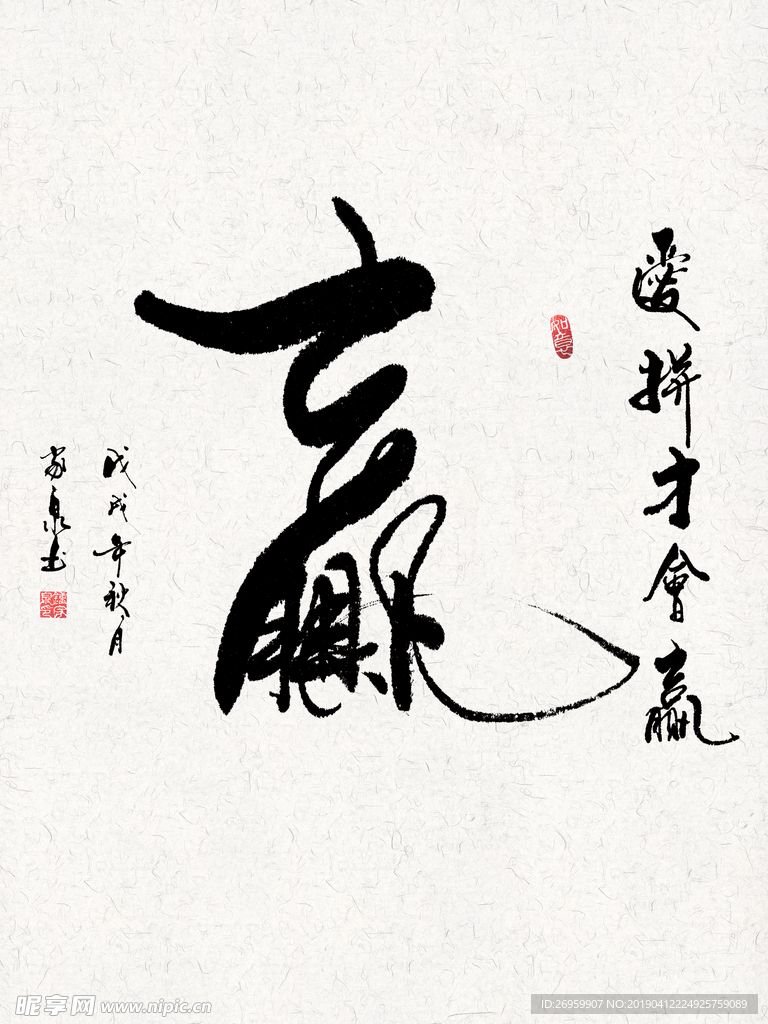 愛拼才會贏
如意
贏
戊戌年秋月
家泉书
昵享网 www.nipic.cn
ID:26959907 NO:20190412224925759089